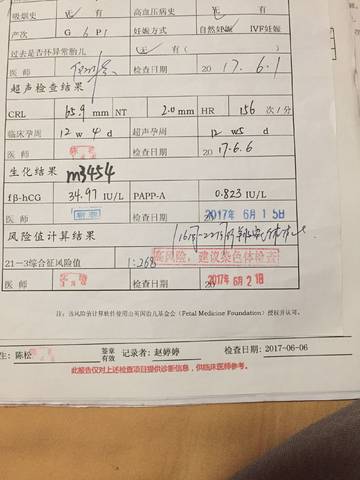 吸烟史 无 有 高血压病史 无 有
产次 G 6 P 1 妊娠方式 自然妊娠 IVF妊娠
过去是否怀异常胎儿 无 有 ( )
医师 检查日期 2017.6.1
超声检查结果
CRL 65.9 mm NT 2.0 mm HR 156 次/分
临床孕周 12 w 4 d 超声孕周 12 w5 d
医师 检查日期 2017.6.6
生化结果 m3454
fβ-hCG 34.97 IU/L PAPP-A 0.823 IU/L
医师 检查日期 2017年 6月 15日
风险值计算结果
21-3综合征风险值 1:268 高风险,建议染色体检查
医师 检查日期 2017年 6月 21日
注:该风险值计算软件使用由英国胎儿基金会(Fetal Medicine Foundation)授权并认可。
生:陈松 签章有效 记录者:赵婷婷 检查日期:2017-06-06
此报告仅对上述检查项目提供诊断信息,供临床医师参考。